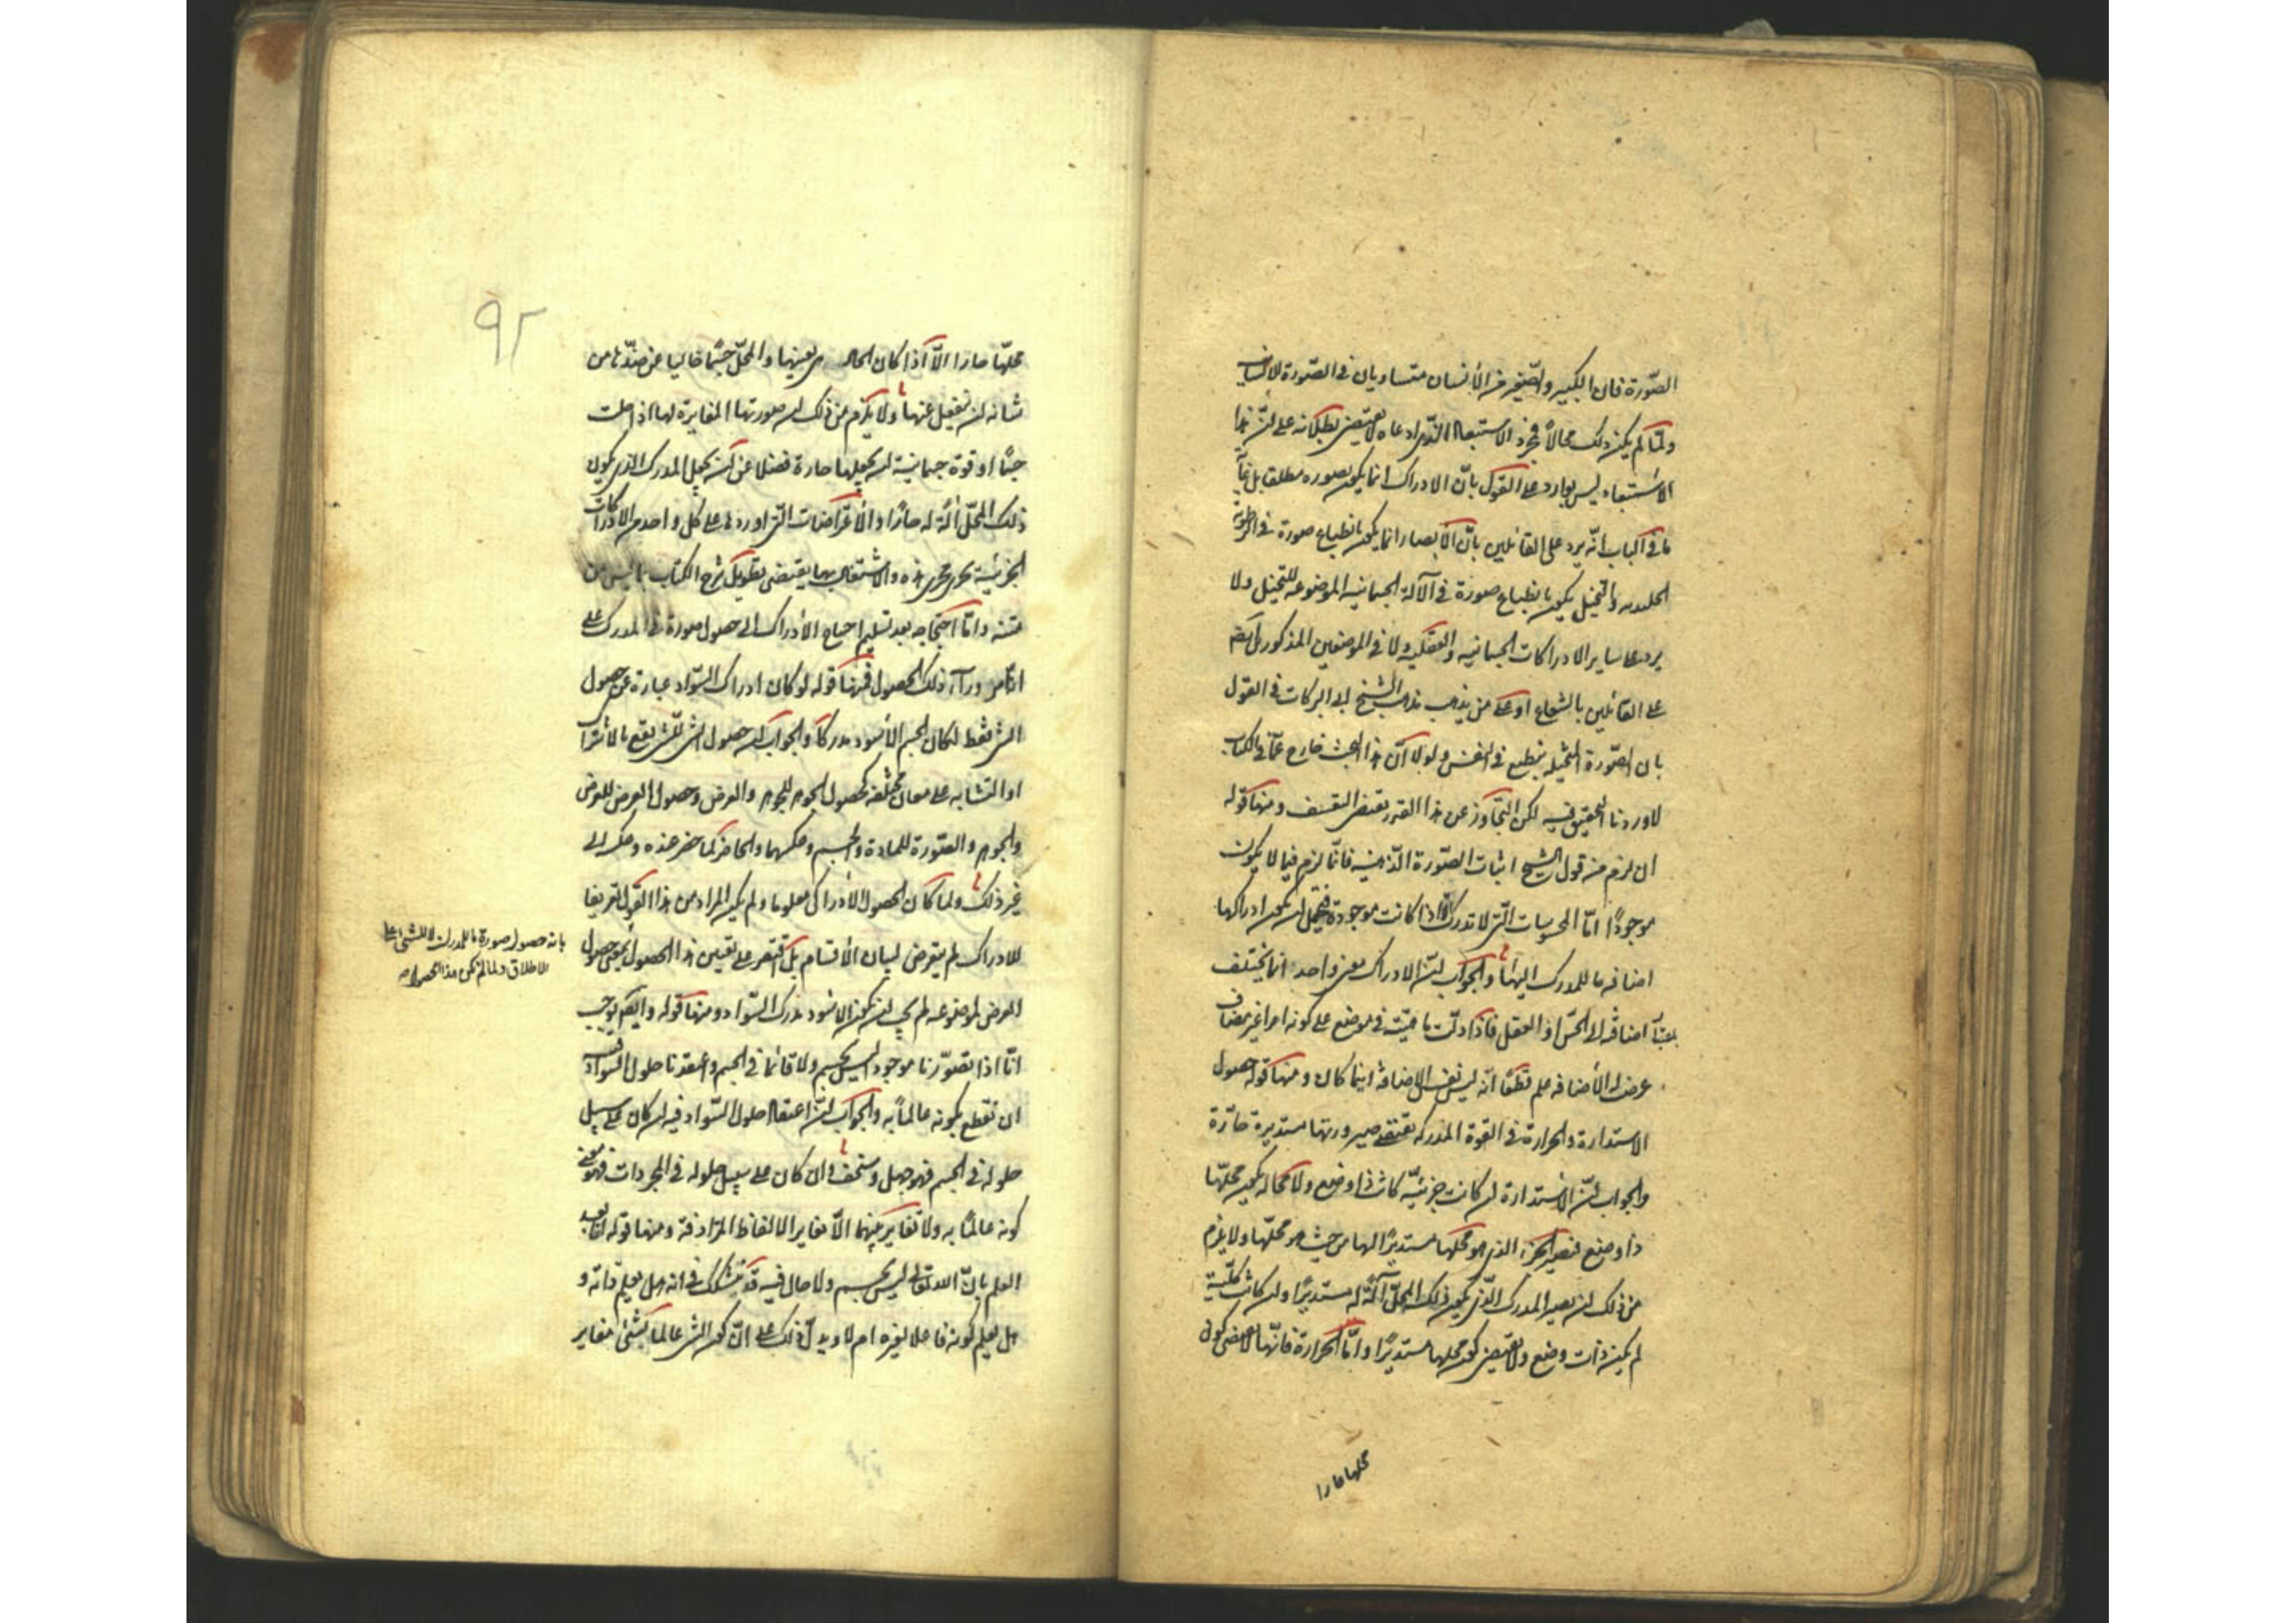 الصّورة فان الكبير والصّغير من الأنسان متساويان فى الصّورة الانسانية
ولمّا لم يكن ذلك محالاً فمجرد الاستبعاد الذى ادعاه لا يقتضى بطلانه على انّ هذا
الاستبعاد ليس بوارد على القول بانّ الادراك انما يكون بصوره مطلقا بل غاية
ما فى الباب انّه يرد على القائلين بانّ الابصار انما يكون بانطباع صورة فى الرطوبة
الجليديه والتخيل يكون بانطباع صورة فى الآلة الجسمانيه الموضوعه للتخيل ولا
يرد على ساير الادراكات الجسمانيه والعقليه ولا فى الموضعين المذكورين ايضا
على القائلين بالشعاع او على من يذهب مذهب الشيخ ابى البركات فى القول
بان الصّورة المتخيله ينطبع فى النفس ولولا انّ هذا البحث خارج عما فى الكتاب
لاوردنا التحقيق فيه لكن التجاوز عن هذا القدر يقتضى التعسف ومنها قوله
ان لزم من قول الشيخ اثبات الصّورة الذهنيه فانّما لزم فيما لا يكون
موجودًا امّا المحسوسات الّتى لا تدرك الا اذا كانت موجودة فيحتمل ان يكون ادراكها
اضافه ما للمدرك اليها والجواب انّ الادراك معنى واحد انما يختلف
باعتبار اضافته الى الحسّ او العقل فاذا دلّت ماهيّته فى موضع على كونه امرا غير مضاف
عرض له الأضافه علم قطعًا انّه ليس نفس الاضافة اينما كان ومنها قوله حصول
الاستدارة والحرارة فى القوة المدركه يقتضى صيرورتها مستديرة حارّة
والجواب انّ الاستدارة ان كانت جزئيّه كانت ذا وضع ولا محالة يكون محلّها
ذا وضع فيصير الجزء الذى هو محلها مستديرًا لها من حيث هو محلّها ولا يلزم
من ذلك ان يصير المدرك الّذى يكون ذلك المحلّ آلة له مستديرًا وان كانت كلّية
لم يكن ذات وضع ولا يقتضى كون محلها مستديرًا وامّا الحرارة فانّها لا تقتضى كون
محلها حارا
٩٢
محلّها حارا الّا اذا كان الحال هى بعينها والمحلّ جسمًا خاليا عن ضدّها من
شانه ان ينفعل عنها ولا يلزم من ذلك ان صورتها المغايرة لها اذا حلت
جسمًا او قوة جسمانيّة ان يجعلها حارة فضلا عن ان يجعل المدرك الذى يكون
ذلك المحلّ آلة له حارًا والأعتراضات الّتى اوردها على كل واحد من الادراكات
الجزئيّة يجرى مجرى هذه والاشتغال بها يقتضى تطويل شرح الكتاب بما ليس من
متنه وامّا احتجاجه بعد تسليم احتياج الأدراك الى حصول صورة فى المدرك على
انّه امر وراء ذلك الحصول فمنها قوله لو كان ادراك السّواد عبارة عن حصول
الشئ فقط لكان الجسم الأسود مدركًا والجواب ان حصول الشئ للشئ يقع بالاشتراك
او التشابه على معان مختلفه كحصول الجوهر للجوهر والعرض وحصول العرض للعرض
والجوهر والصّورة للمادة والجسم وعكسهما والحاضر لما حضر عنده وعكسه الى
غير ذلك ولما كان الحصول الادراكى معلوما ولم يكن المراد من هذا القول تعريفا
للادراك لم يتعرض لبيان الأقسام بل اقتصر على تعيين هذا الحصول يعنى حصول
بانه حصول صورة ما للمدرك لا للشئ على
الاطلاق ولما لم يكن هذا الحصول هو
العرض لموضوعه لم يجب ان يكون الاسود مدرك السّواد ومنها قوله وايضا يوجب
انّا اذا تصوّرنا موجودا ليس بجسم ولا قائما فى الجسم واعتقدنا حلول السّواد فيه
ان نقطع بكونه عالماً به والجواب انّ اعتقاد حلول السّواد فيه ان كان على سبيل
حلوله فى الجسم فهو جهل وسخف وان كان على سبيل حلوله فى المجردات فهو معنى
كونه عالمًا به ولا تغاير بينهما الّا تغاير الالفاظ المترادفة ومنها قوله انا بعد
العلم بانّ اللّه تعالى ليس بجسم ولا حال فيه قد نتشكك فى انه هل يعلم ذاته و
هل يعلم كونه فاعلا لغيره ام لا ويدلّ ذلك على انّ كون الشئ عالما بشئ مغاير